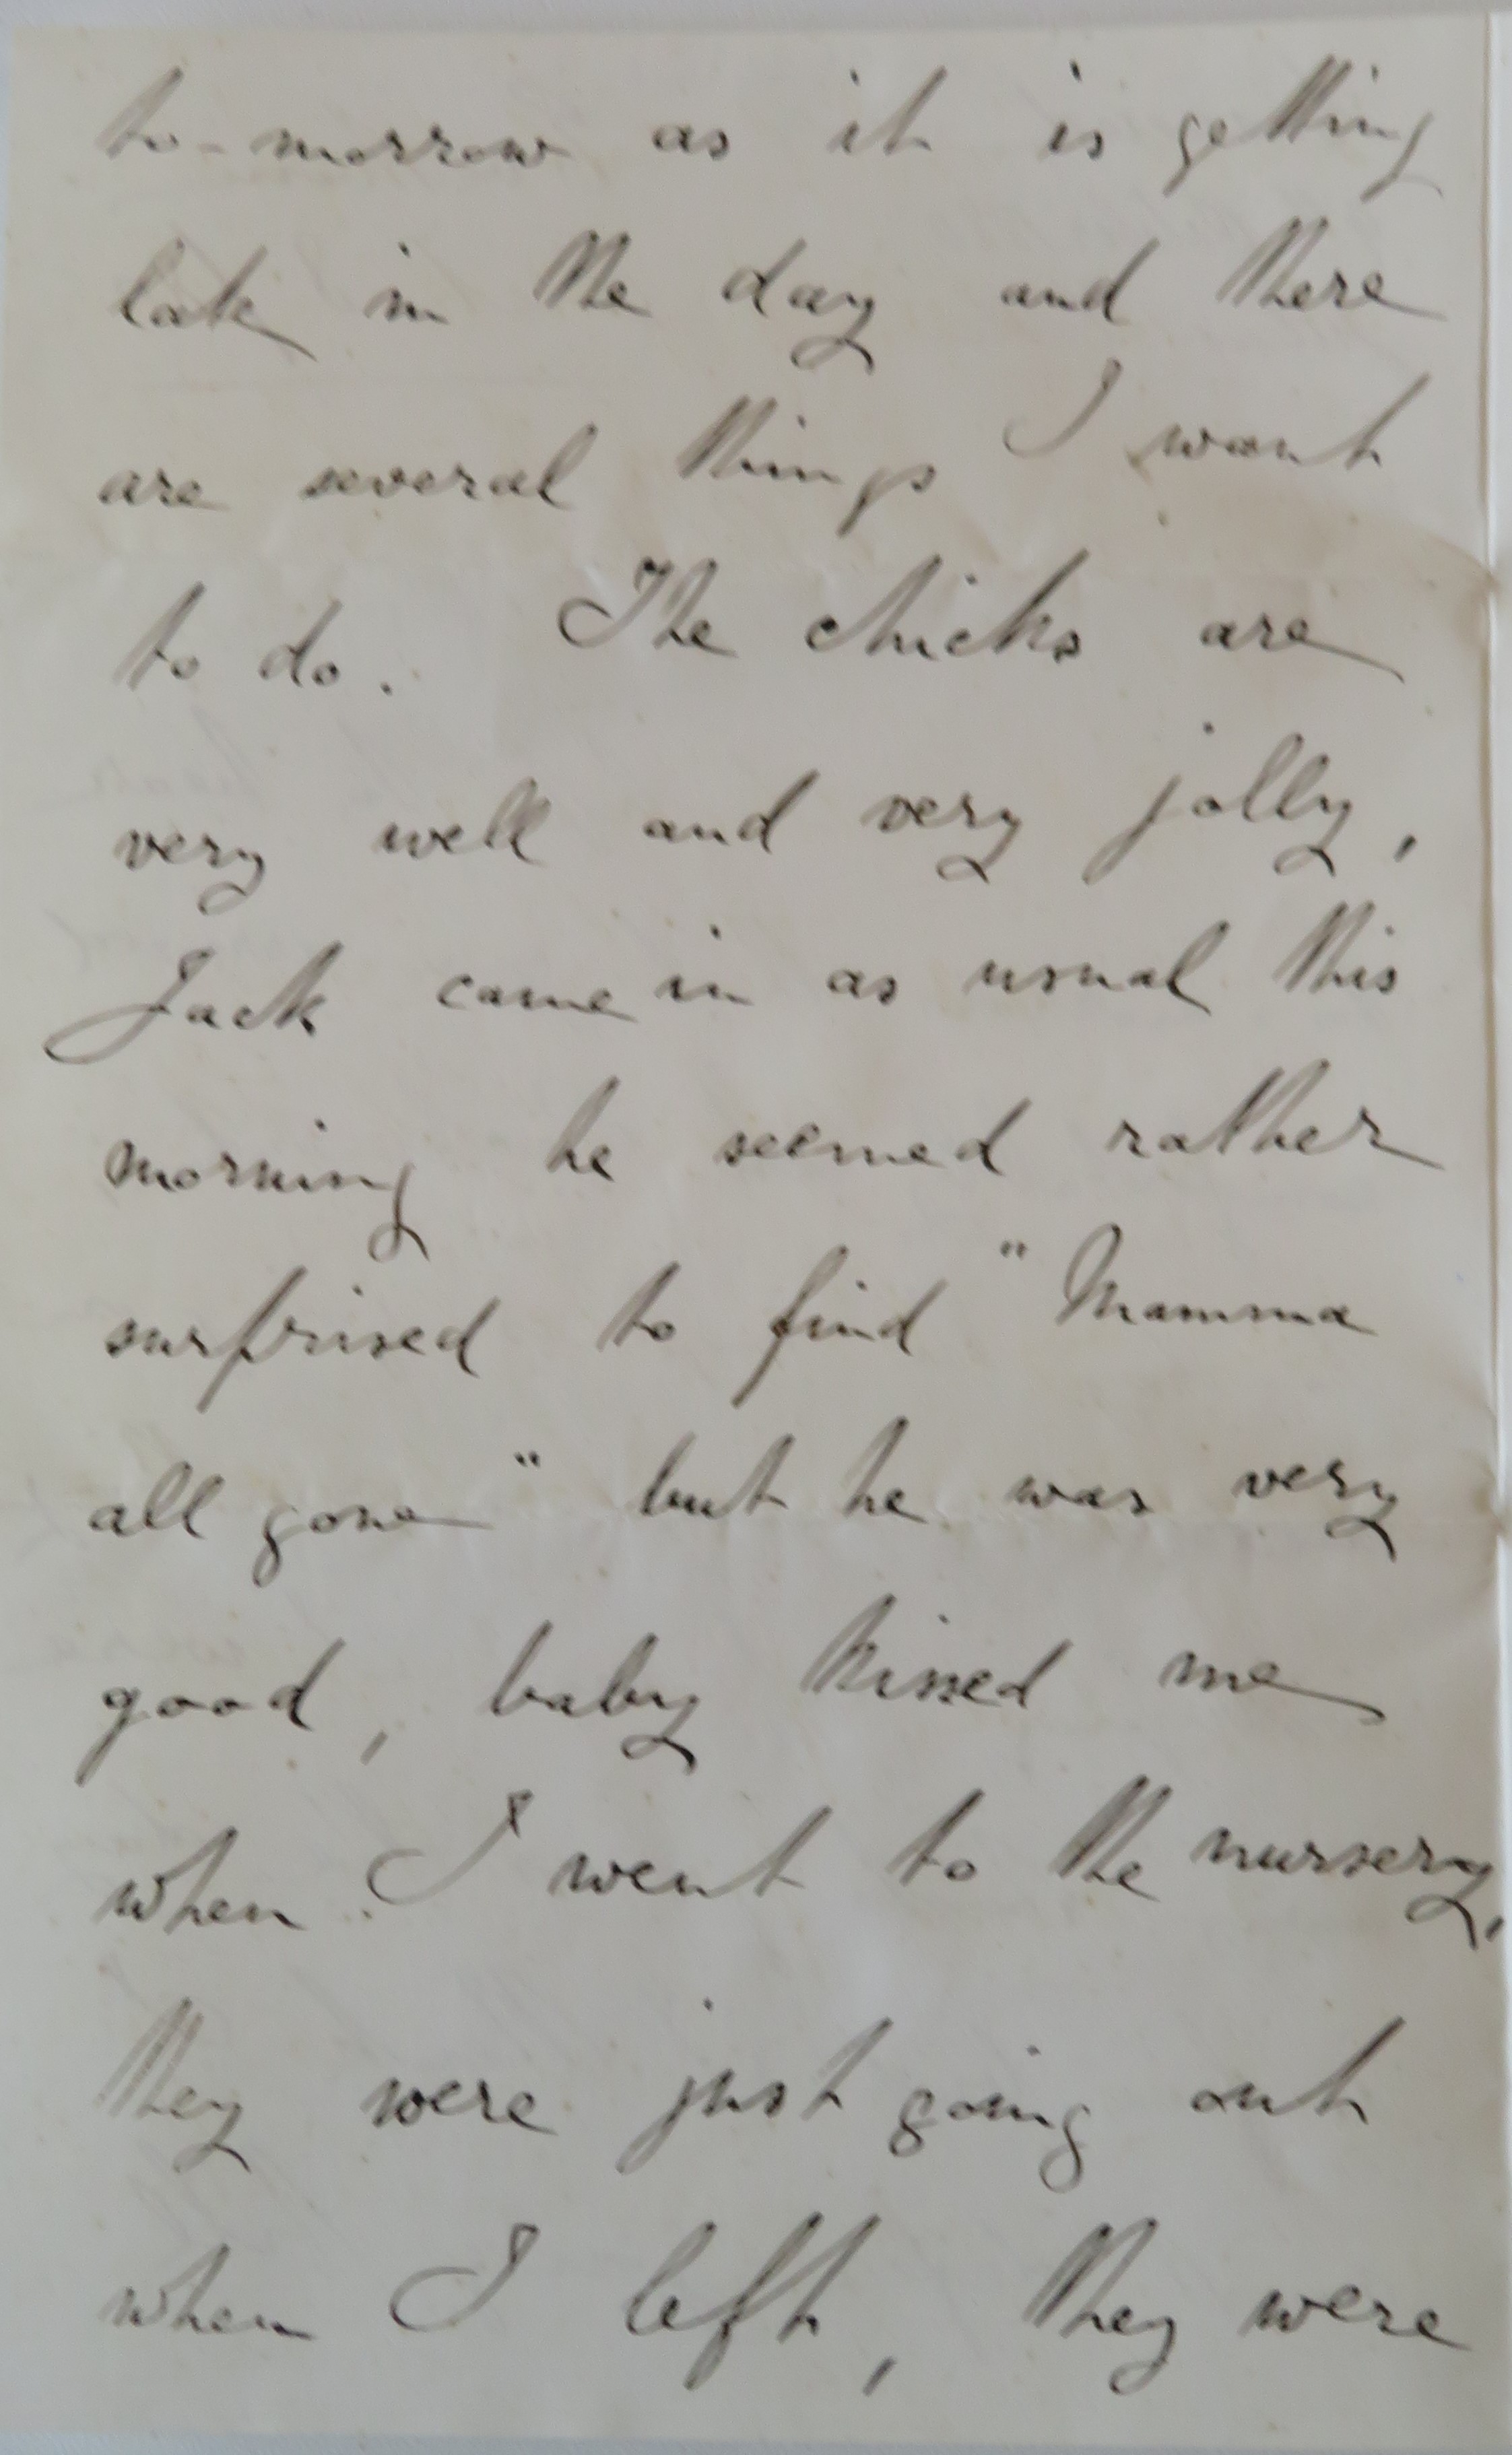 to-morrow as it is getting
late in the day and there
are several things I want
to do. The chicks are
very well and very jolly,
Jack came in as usual this
morning he seemed rather
surprised to find "Mamma
all gone" but he was very
good, baby kissed me
when I went to the nursery,
they were just going out
when I left, they were